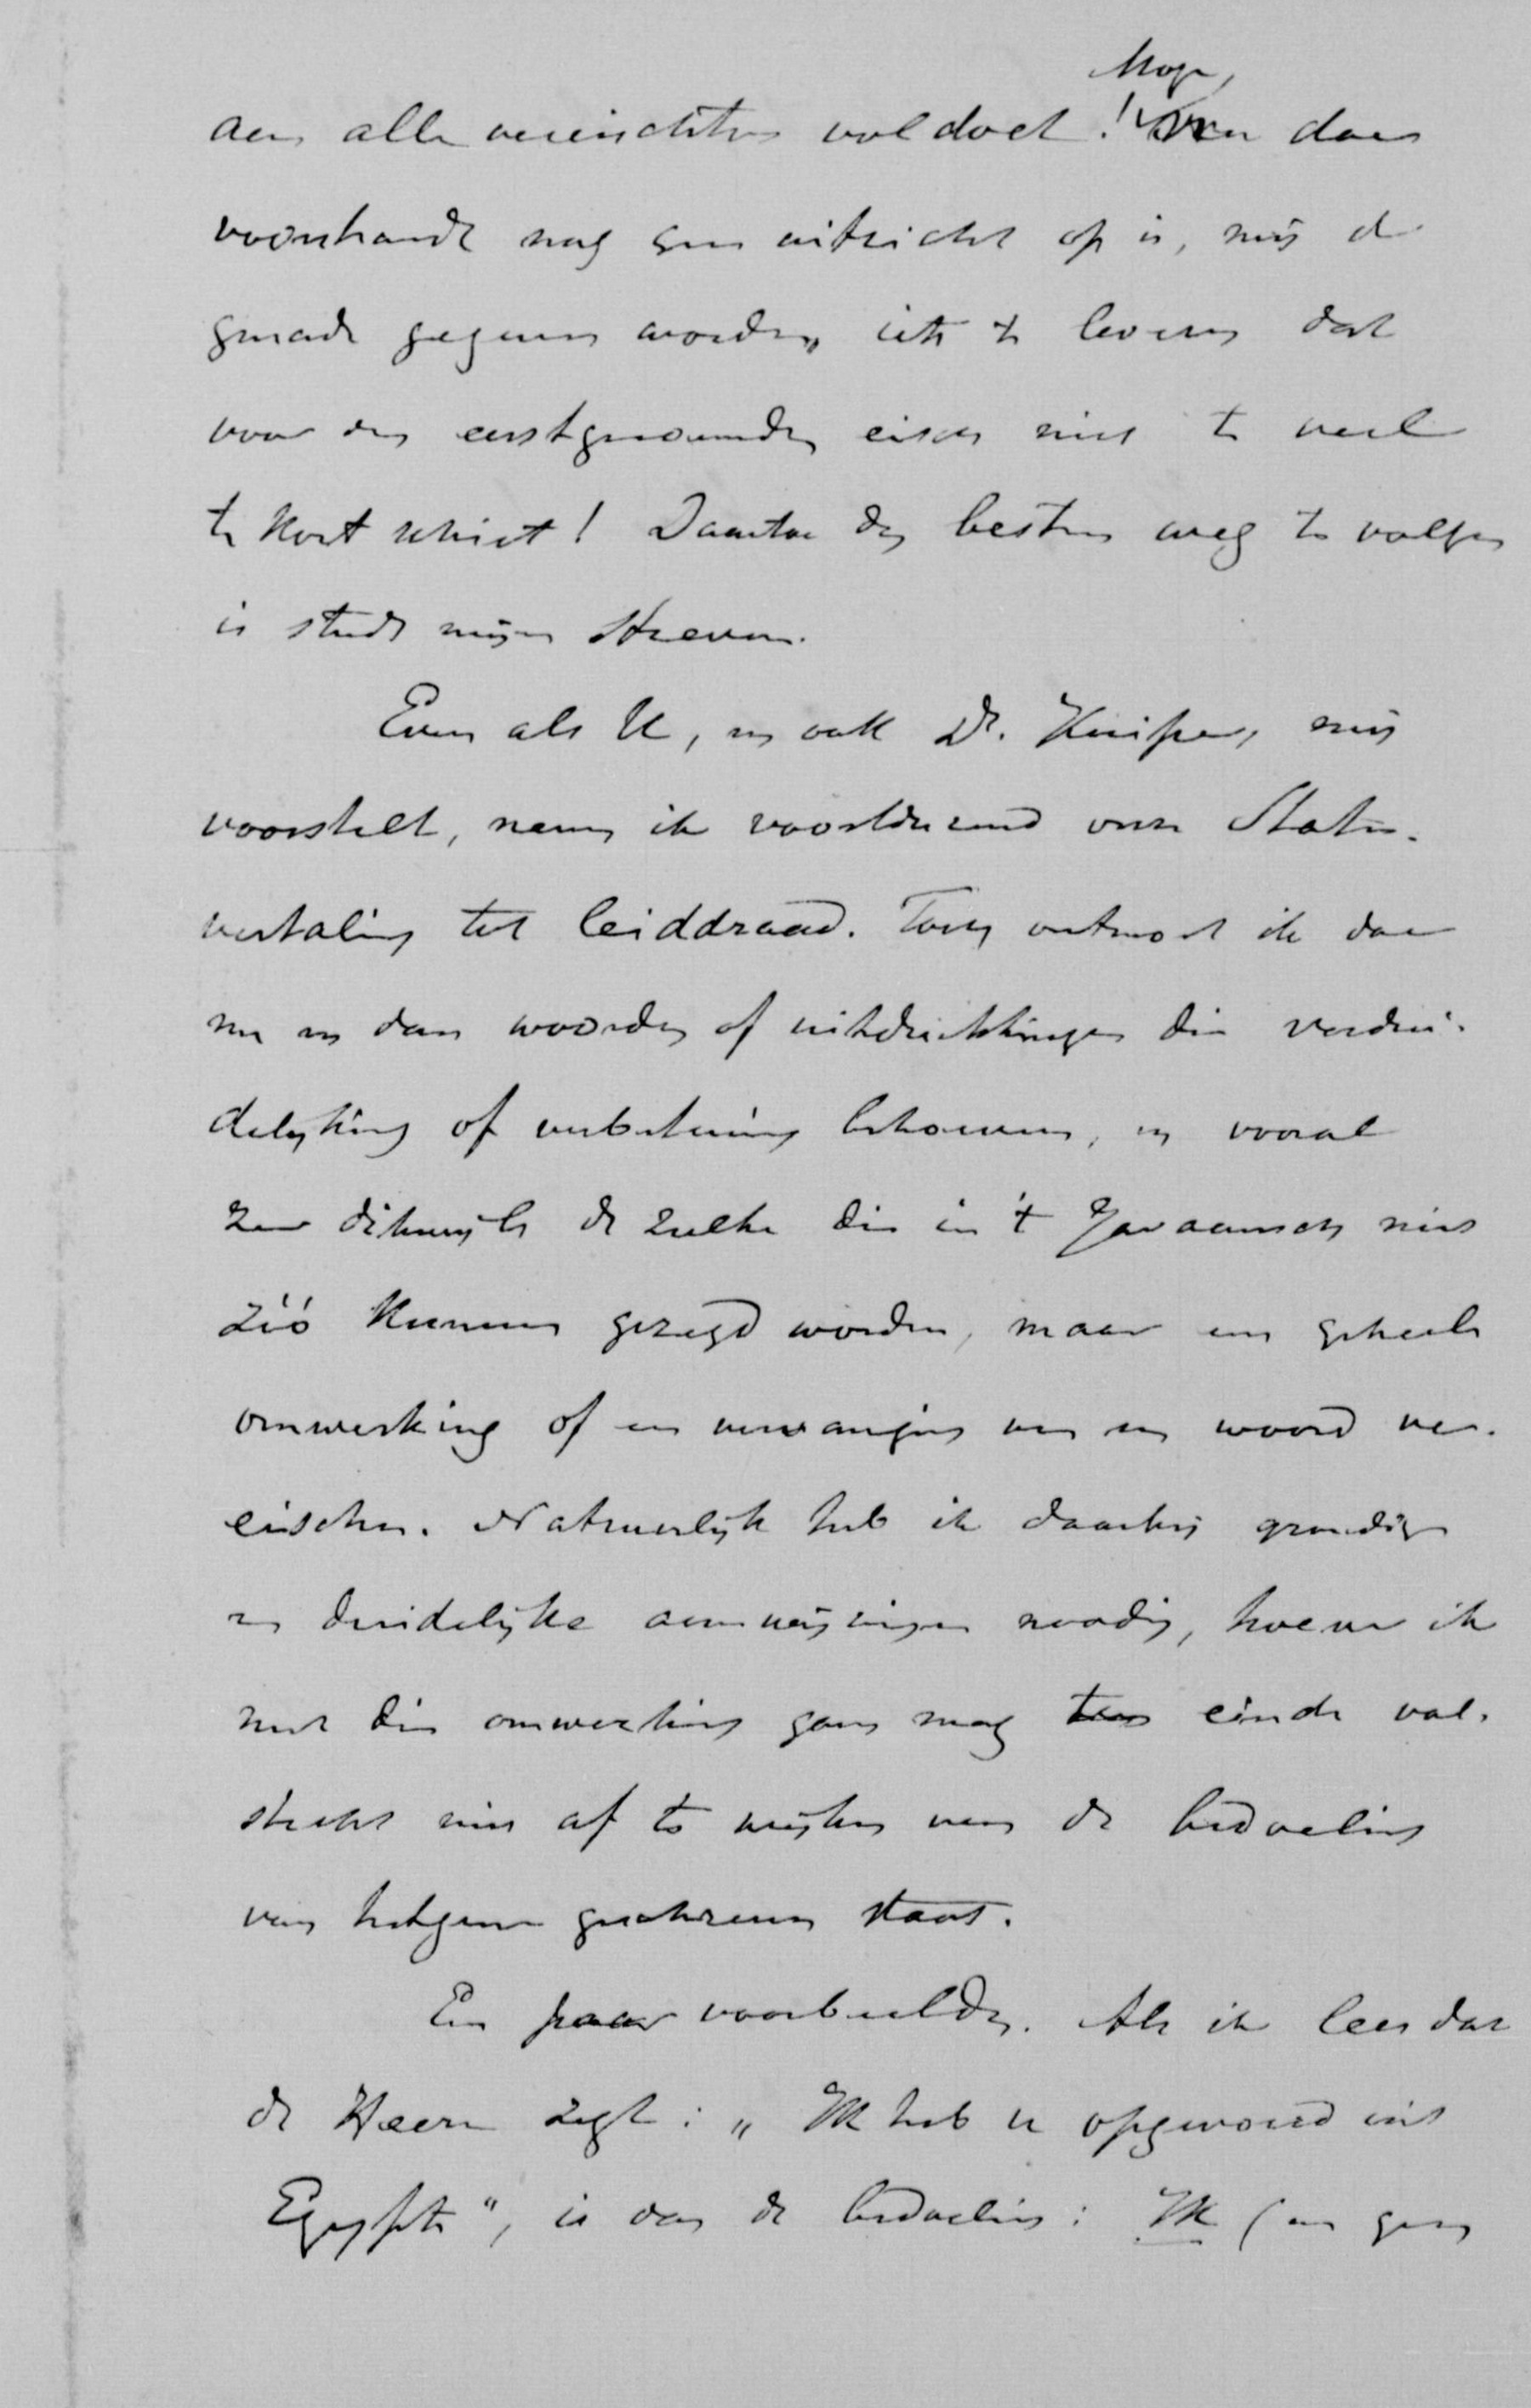 Moge,
aan alle vereischten voldoet! daar
voorshands nog geen uitzicht op is, mij de
genade gegeven worden, iets te leveren dat
voor den eerstgenoemden eisch niet te veel
te kort schiet! Daartoe den besten weg te volgen
is steeds mijn streven.
Even als U, en ook Dr. Kuiper, mij
voorstelt, neem ik voortdurend onze Staten-
vertaling tot leiddraad. Toch ontmoet ik daar
nu en dan woorden of uitdrukkingen die verdui-
delijking of verbetering behoeven, en vooral
zeer dikwijls de zulke die in 't Javaansch niet
zóó kunnen gezegd worden, maar een geheele
omwerking of een vervanging van een woord ver-
eischen. Natuurlijk heb ik daarbij grondige
en duidelijke aanwijzingen noodig, hoever ik
met die omwerking gaan mag einde vol-
strekt niet af te wijken van de bedoeling
van hetgeen geschreven staat.
Een paar voorbeelden. Als ik lees dat
de Heere zegt: „Ik heb u opgevoerd uit
Egypte", is dan de bedoeling: Ik (en geen